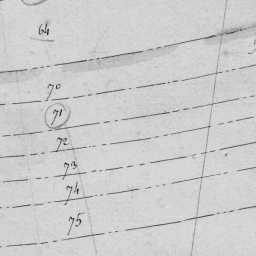 64
70
71
72
73
74
75